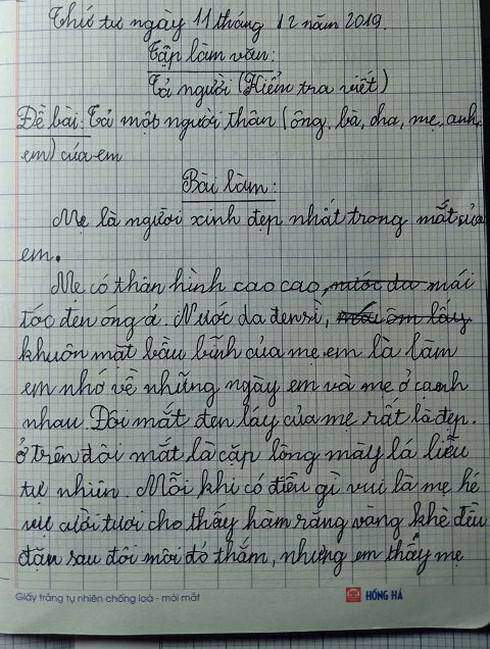 Thứ tư ngày 11 tháng 12 năm 2019.
Tập làm văn:
Tả người (Kiểm tra viết)
Đề bài: Tả một người thân (ông, bà, cha, mẹ, anh,
em) của em
Bài làm:
Mẹ là người xinh đẹp nhất trong mắt của
em.
Mẹ có thân hình cao cao, nước da mái
tóc đen óng ả. Nước da đen sì, ôm lấy
khuôn mặt bầu bĩnh của mẹ em là làm
em nhớ về những ngày em và mẹ ở cạnh
nhau. Đôi mắt đen láy của mẹ rất là đẹp.
ở trên đôi mắt là cặp lông mày lá liễu
tự nhiên. Mỗi khi có điều gì vui là mẹ hé
cười tươi cho thấy hàm răng vàng khè đều
đặn sau đôi môi đỏ thắm, nhưng em thấy mẹ
Giấy trắng tự nhiên chống loá - mỏi mắt
HỒNG HÀ